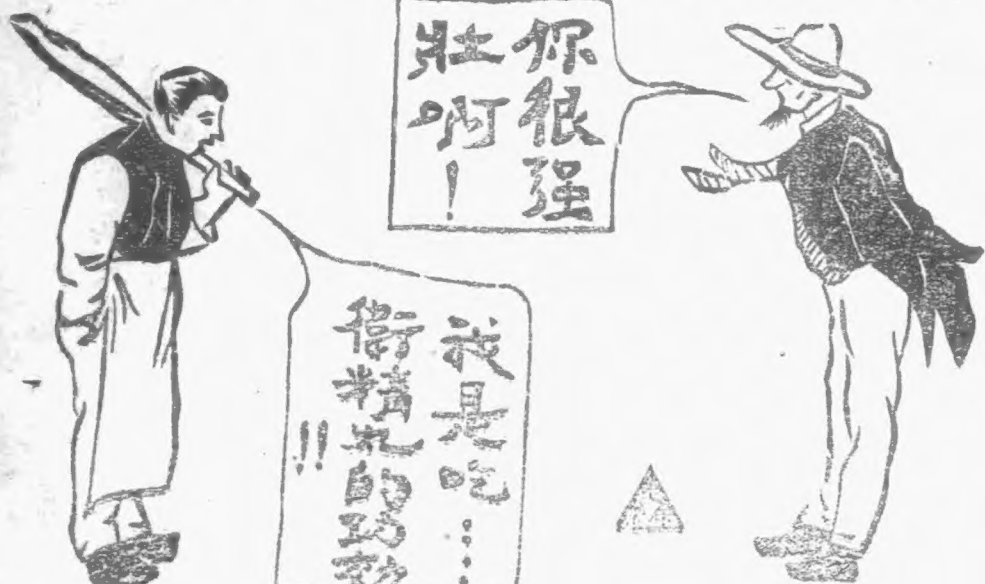 你很强
壯啊！
我是吃……
衛精丸的功
!!